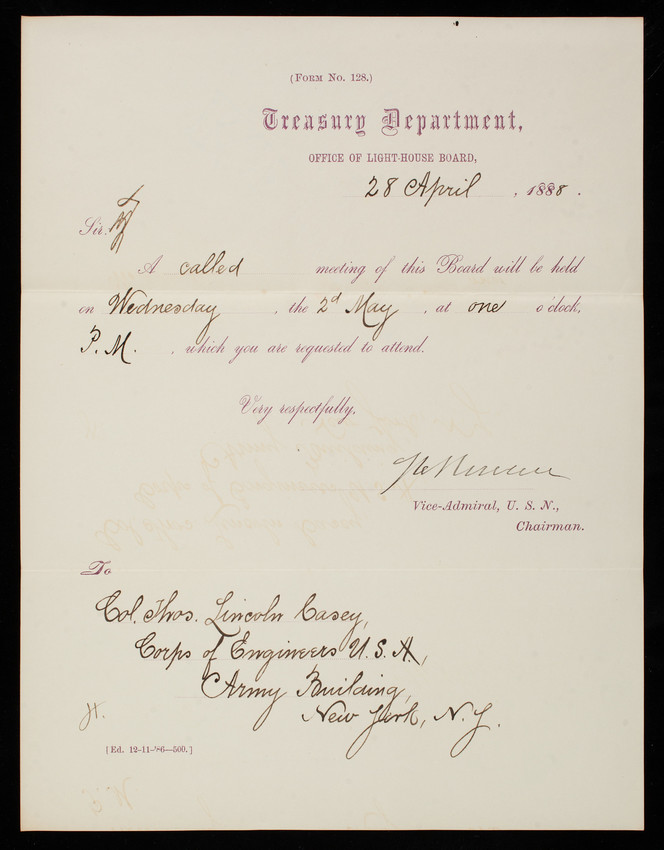 (FORM NO. 128.)
Treasury Department,
OFFICE OF LIGHT-HOUSE BOARD,
28 April, 1888.
Sir:
A called meeting of this Board will be held
on Wednesday, the 2d May, at one o'clock,
P. M., which you are requested to attend.
Very respectfully,
Vice-Admiral, U. S. N.,
Chairman.
To
Col. Thos. Lincoln Casey,
Corps of Engineers U. S. A.,
Army Building,
New York, N. Y.
H.
[Ed. 12-11-'86—500.]